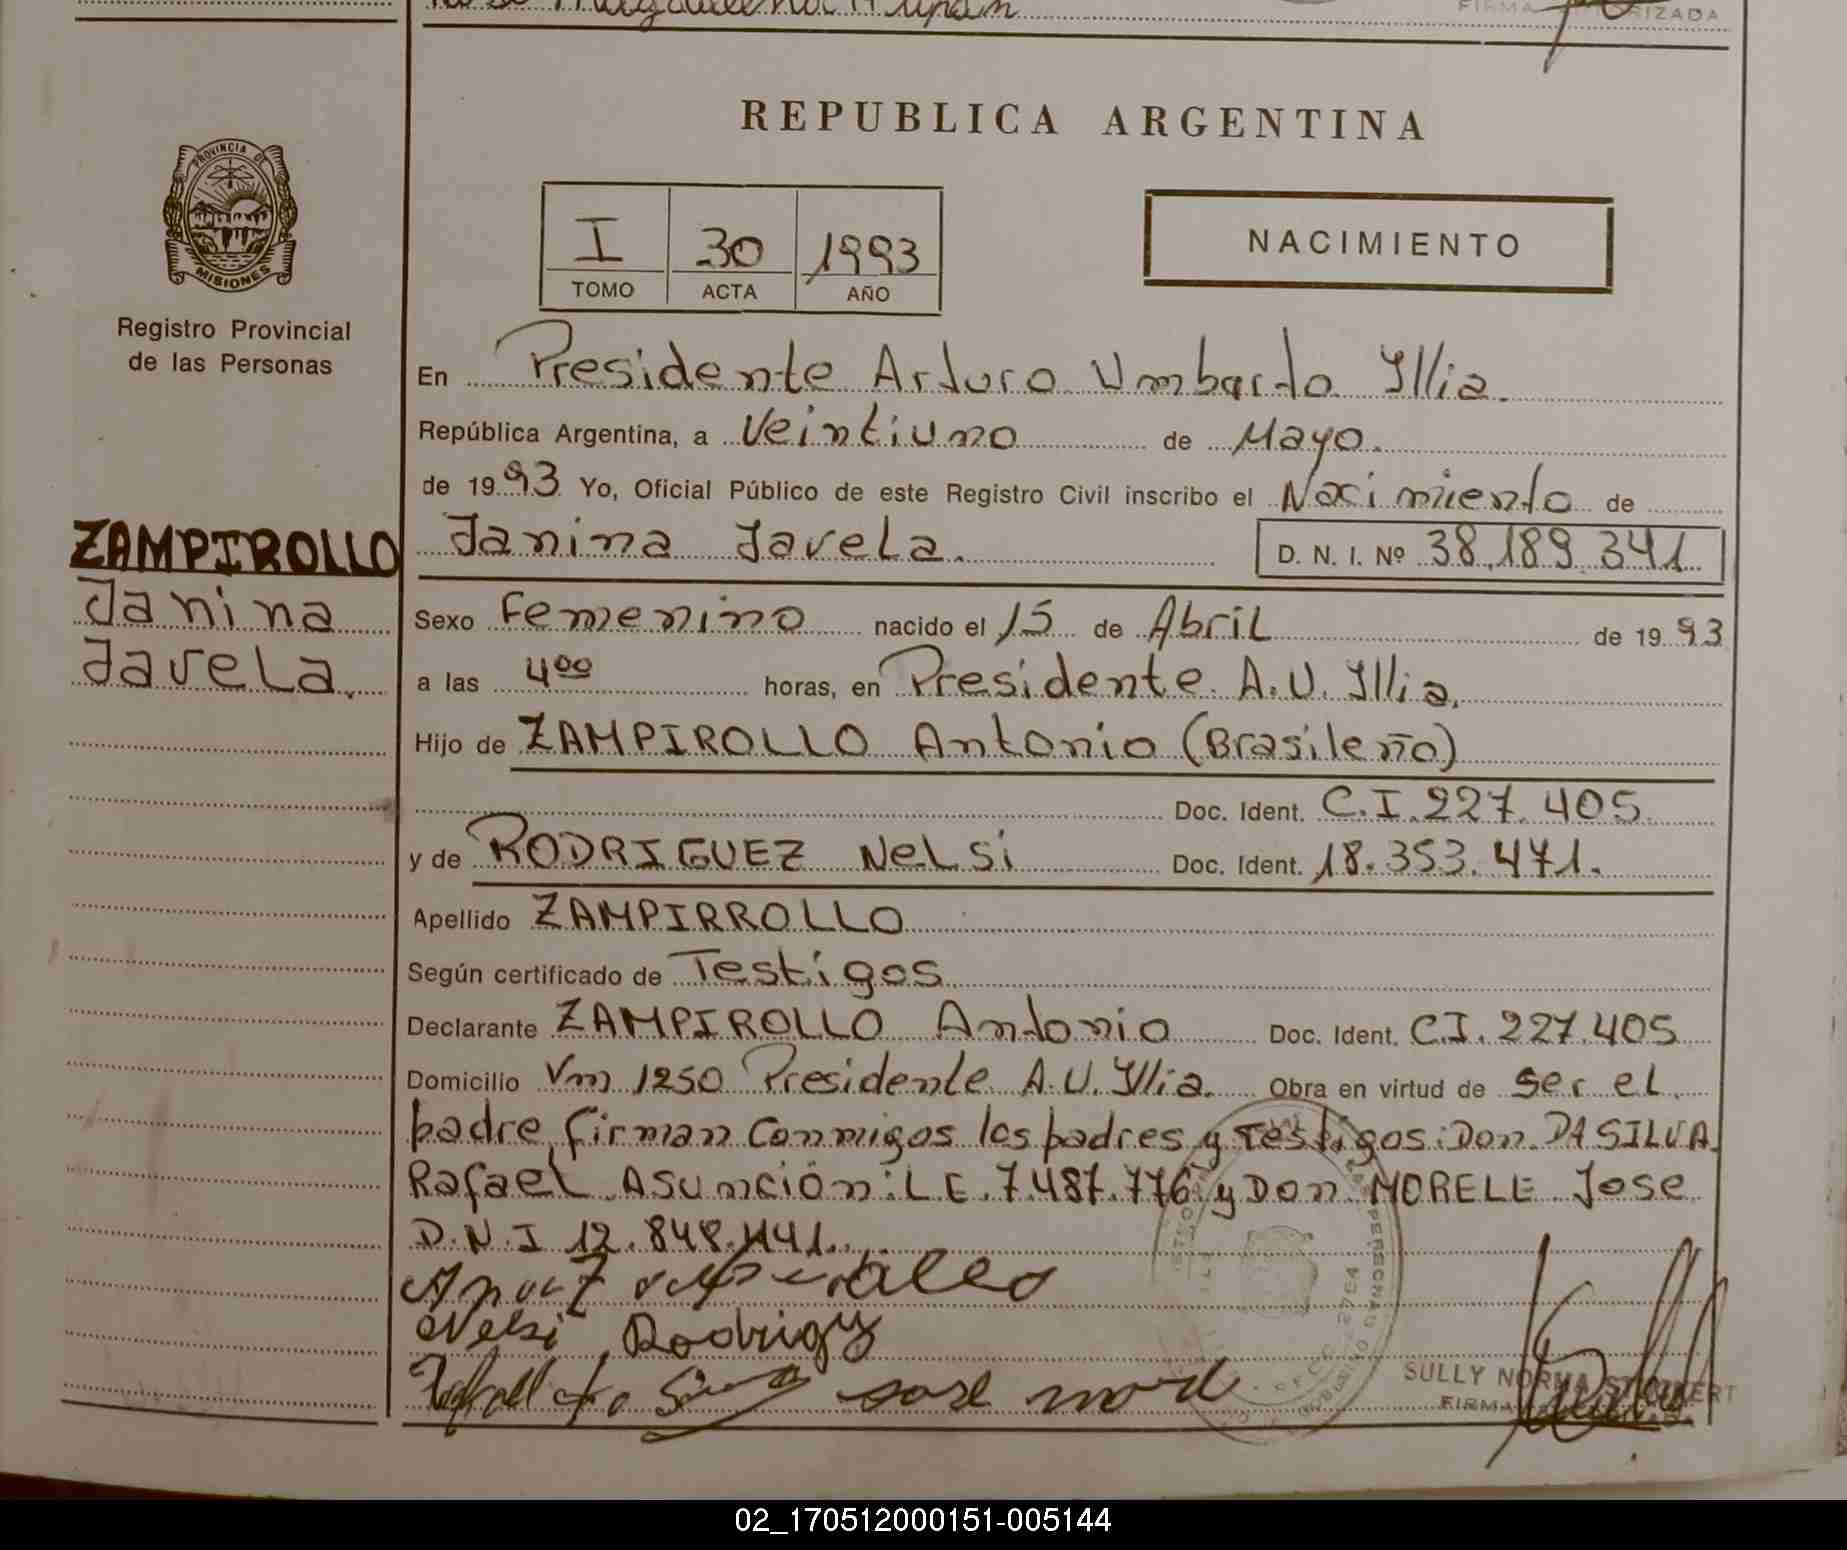 FIRMA AUTORIZADA
PROVINCIA DE
MISIONES
Registro Provincial
de las Personas
ZAMPIROLLO
Janina
Javela.
REPUBLICA ARGENTINA
I 30 1993
TOMO ACTA AÑO
NACIMIENTO
En Presidente Arturo Umbardo Illia.
República Argentina, a Veintiuno de Mayo.
de 1993 Yo, Oficial Público de este Registro Civil inscribo el Nacimiento de
Janina Javela. D. N. I. Nº 38.189.341
Sexo Femenino nacido el 15 de Abril de 1993
a las 4⁰⁰ horas, en Presidente A.U. Illia.
Hijo de ZAMPIROLLO Antonio (Brasileño)
Doc. Ident. C.I. 227.405
y de RODRIGUEZ Nelsi Doc. Ident. 18.353.471.
Apellido ZAMPIRROLLO
Según certificado de Testigos
Declarante ZAMPIROLLO Antonio Doc. Ident. C.I. 227.405
Domicilio Vm 1250 Presidente A.U. Illia. Obra en virtud de ser el
padre, firman conmigos los padres y testigos: Don DA SILVA
Rafael Asunción: L E. 7.487.776 y Don MORELE Jose
D.N.I 12.848.441.
Nelsi Rodriguz
SULLY NORMA
FIRMA
02_170512000151-005144